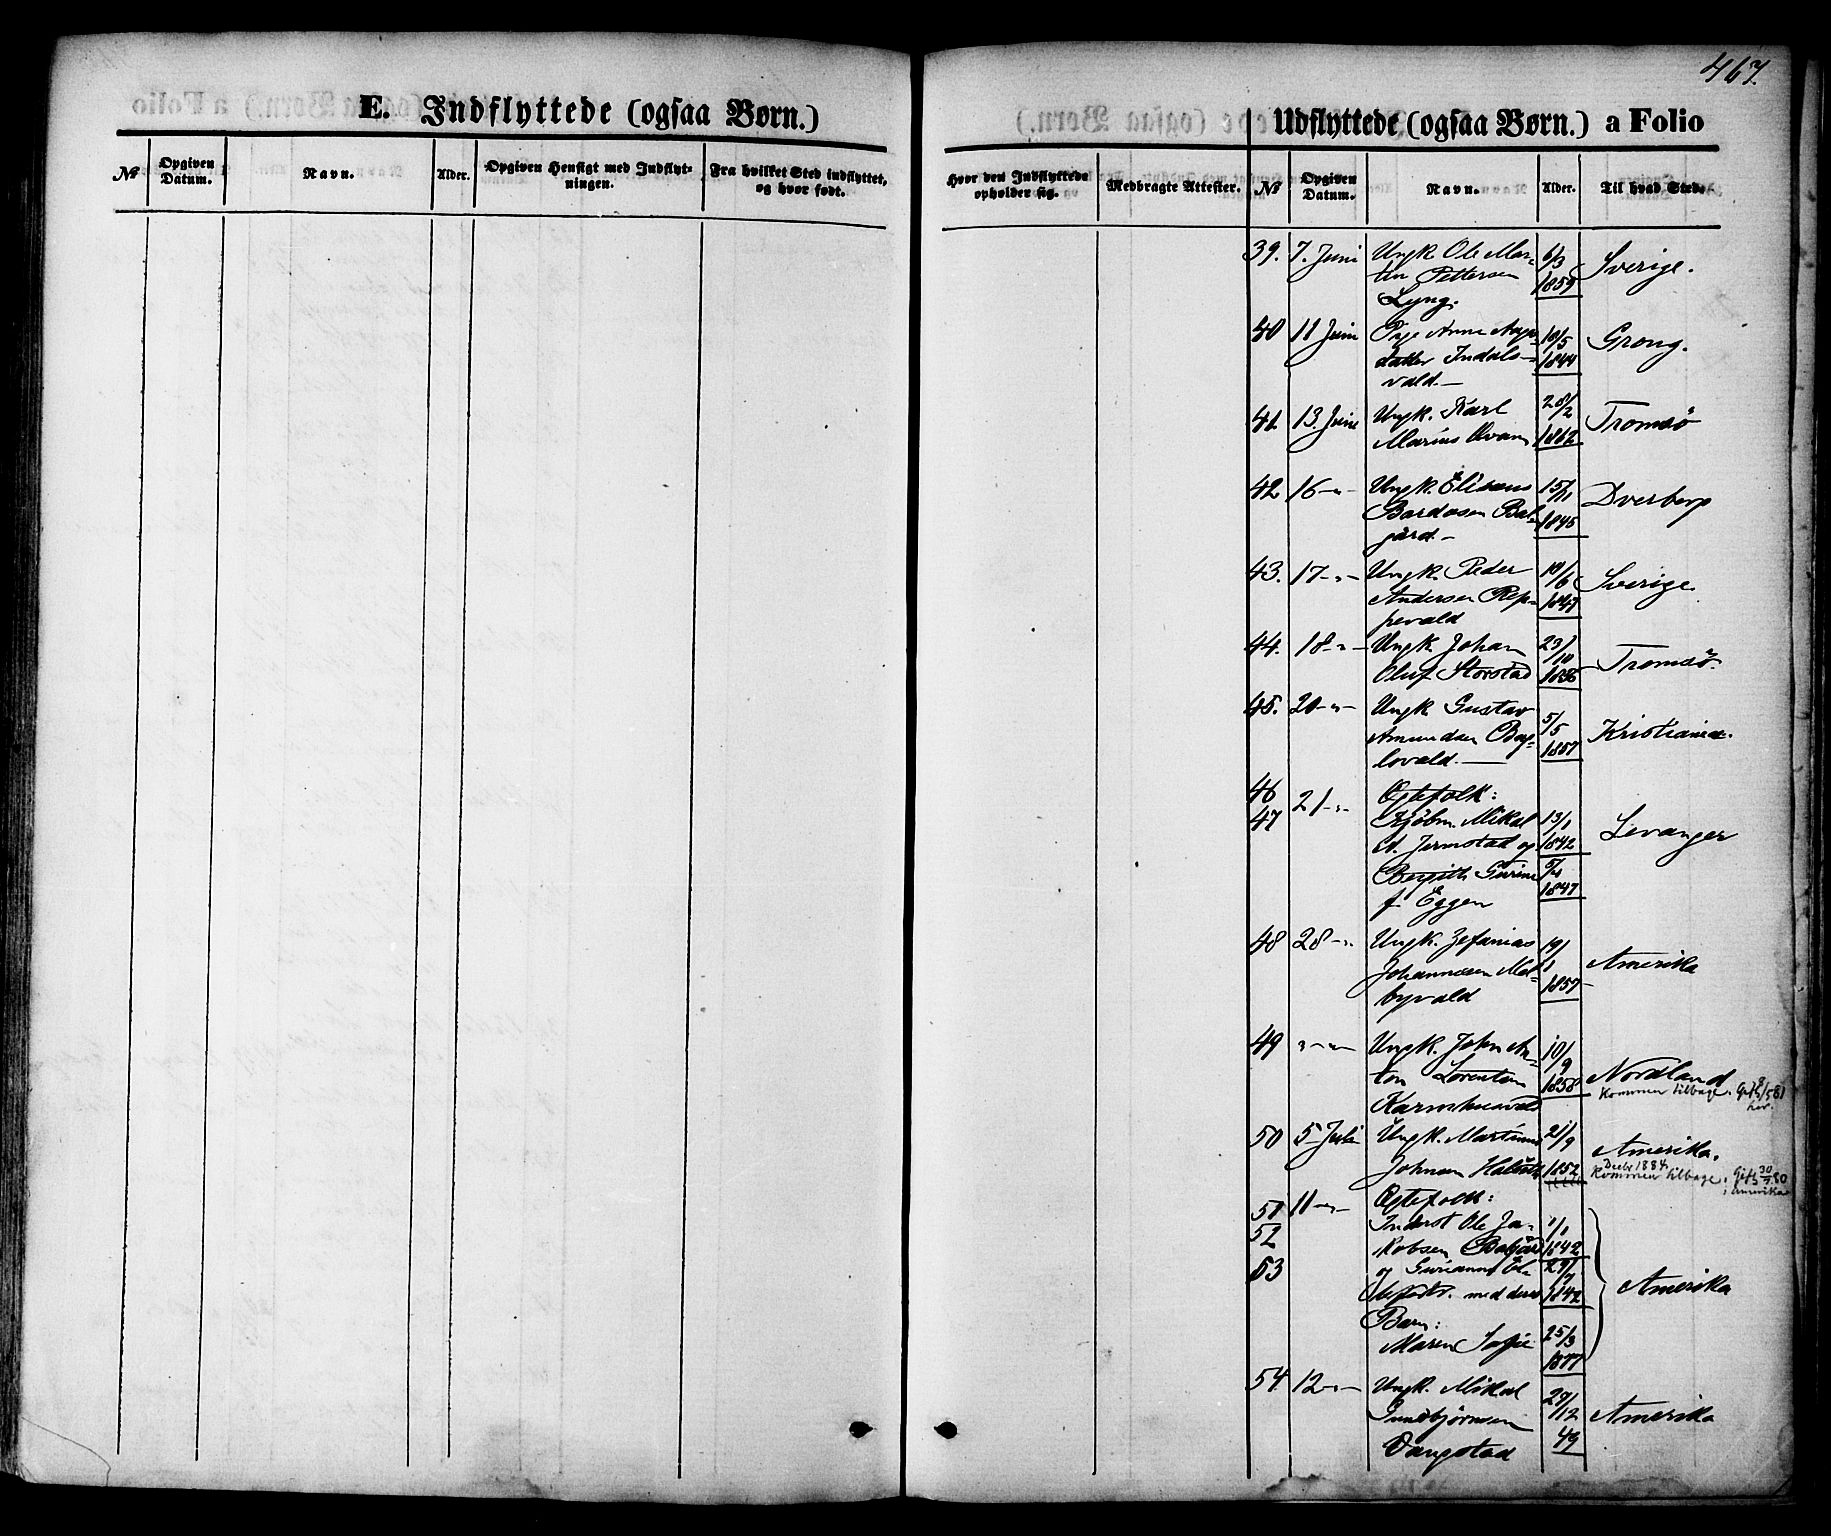 467.
E. Indflyttede (ogsaa Børn.)
Udflyttede (ogsaa Børn.) a Folio
№
Opgiven Datum.
Navn.
Alder.
Opgiven Hensigt med Indflyt-
ningen.
Fra hvilket Sted indflyttet,
og hvor født.
Hvor den Indflyttede
opholder sig.
Medbragte Attester.
№
Opgiven Datum.
Navn.
Alder.
Til hvad Sted.
39. 7. Juni Ungk. Ole Mar- 6/3 Sverige.
tin Pettersen 1859
Lyng.
40 11 Juni Pige Anne 10/5 Grong.
datter Indals- 1844
vald.
41 13. Juni Ungk. Karl 28/2 Tromsø
Marius 1862
42 16 -"- Ungk. Elisæus 15/11 Dverberg
Bardosen Bal- 1845
gård.
43. 17 -"- Ungk. Peder 10/6 Sverige.
Andersen Rep- 1847
pevald
44. 18 -"- Ungk Johan 23/10 Tromsø.
Oluf Storstad 1856
45. 20 -"- Ungk Gustav 5/5 Kristiania.
Amundsen Bag- 1857
lovald.
46 21 -"- Egtefolk:
47 Kjøbm. Mikal 13/1 Levanger
A. Jermstad og 1842
Bergith Gurine 5/4
f. Eggen 1847
48 28 -"- Ungk. Zefanias 19/1 Amerika
Johannesen Mel- 1857
byvald
49 " - " - Ungk. John An- 10/9 Nordland
ton Lorentsen 1858 Kommen tilbage. Gift 8/5 81
her.
50 5 Juli Ungk. Martinus 21/9 Amerika.
Johnsen 1852 Decbr 1884
Kommen tilbage. Gift 30/5 80
i Amerika
51 11 -"- Egtefolk:
52 Inderst Ole Ja- 1/1
kobsen Balgård 1842
53 og Gurianna El- 29/7 Amerika
med deres 1842
Barn:
Maren Sofie 25/3
1877
54 12 -"- Ungk. Mikal 29/12 Amerika
Gundbjørnsen 49
Vangstad